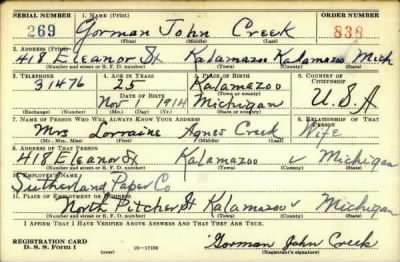 SERIAL NUMBER 1. NAME (Print) ORDER NUMBER
269 Gorman John Creek 838
(First) (Middle) (Last)
2. ADDRESS (Print)
418 Eleanor St Kalamazoo Kalamazoo Mich
(Number and street or R. F. D. number) (Town) (County) (State)
3. TELEPHONE 4. AGE IN YEARS 5. PLACE OF BIRTH 6. COUNTRY OF CITIZENSHIP
31476 25 Kalamazoo
DATE OF BIRTH (Town or county)
Nov 1 1914 Michigan U.S.A
(Exchange) (Number) (Mo.) (Day) (Yr.) (State or country)
7. NAME OF PERSON WHO WILL ALWAYS KNOW YOUR ADDRESS 8. RELATIONSHIP OF THAT PERSON
Mrs Lorraine Agnes Creek Wife
(Mr., Mrs., Miss) (First) (Middle) (Last)
9. ADDRESS OF THAT PERSON
418 Eleanor St Kalamazoo v Michigan
(Number and street or R. F. D. number) (Town) (County) (State)
10. EMPLOYER'S NAME
Sutherland Paper Co
11. PLACE OF EMPLOYMENT OR BUSINESS
North Pitcher St Kalamazoo v Michigan
(Number and street or R. F. D. number) (Town) (County) (State)
I AFFIRM THAT I HAVE VERIFIED ABOVE ANSWERS AND THAT THEY ARE TRUE.
REGISTRATION CARD
D. S. S. Form 1 Gorman John Creek
(Registrant's signature)